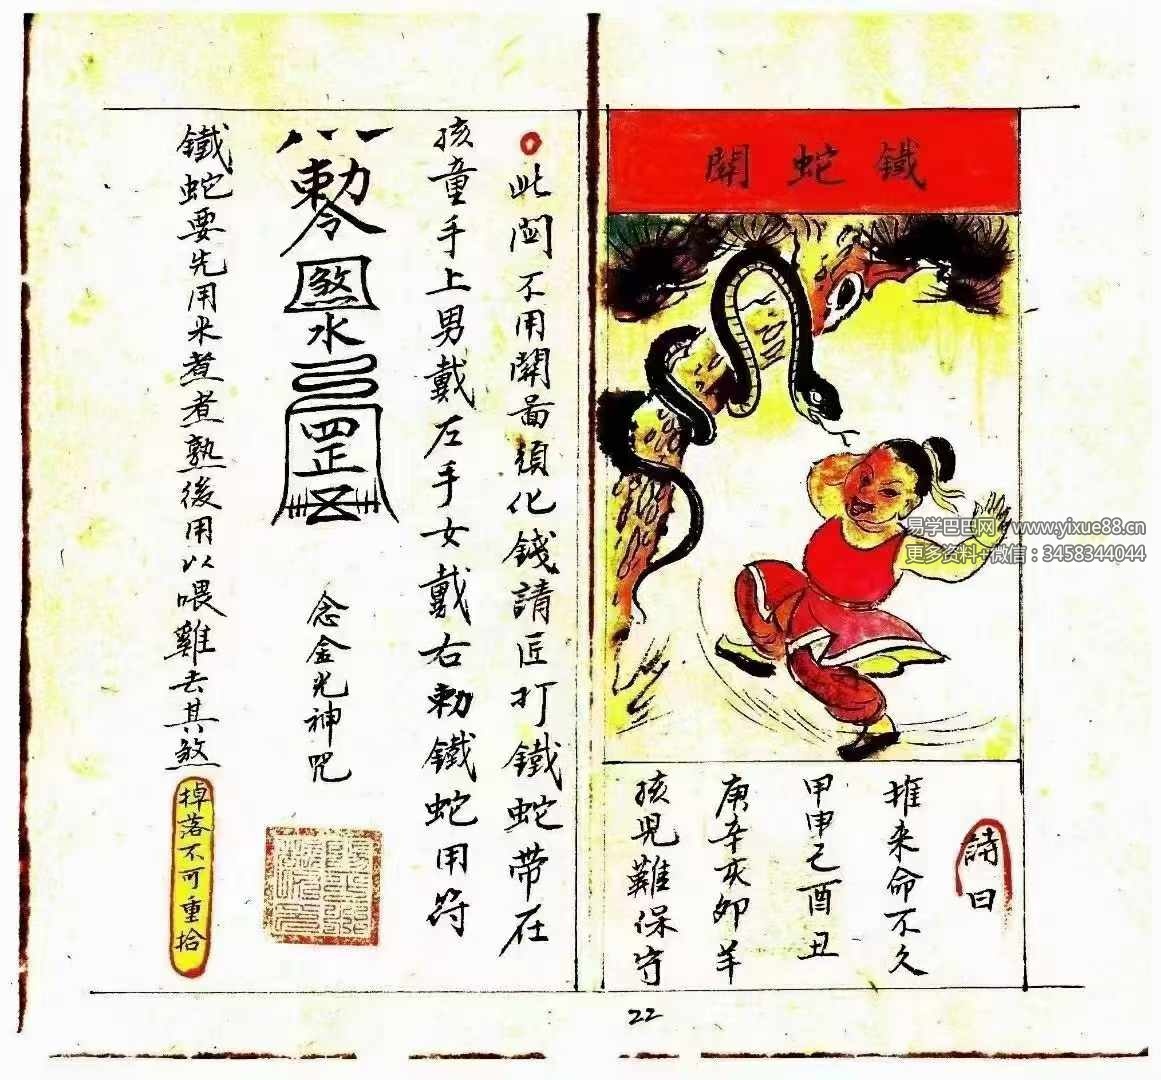 鐵蛇關
詩曰
推來命不久
甲申乙酉丑
庚辛亥卯羊
孩兒難保守
此関不用關畗須化錢請匠打鐵蛇帶在
孩童手上男戴左手女戴右勅鐵蛇用符
勅令
煞
水
罡
念金光神咒
鐵蛇要先用米煮煮熟後用以喂雞去其煞
掉落不可重拾
22
易学巴巴网：www.yixue88.cn
更多资料+微信：3458344044